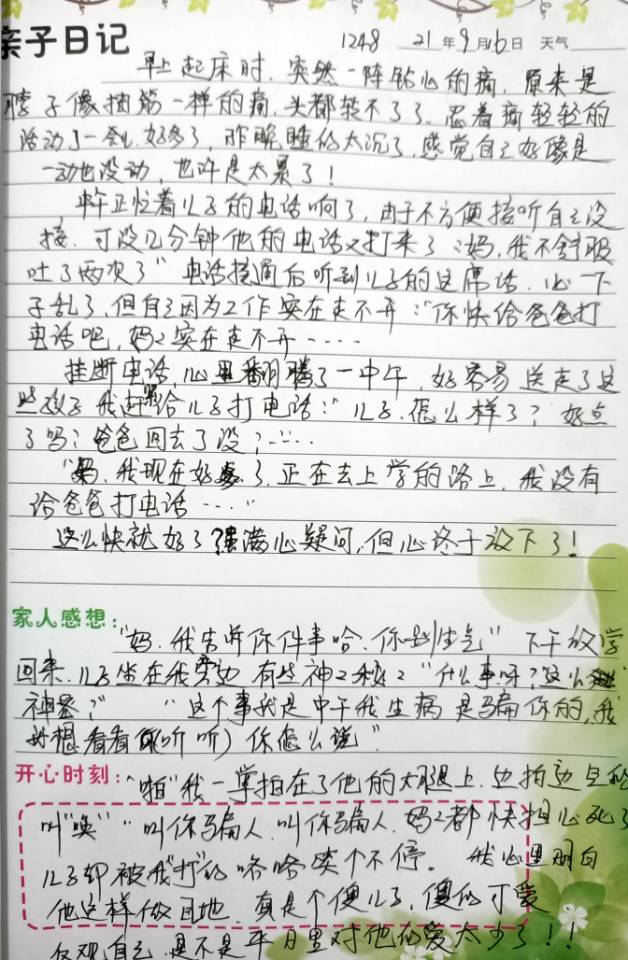 亲子日记 1248 21年9月16日 天气
早上起床时,突然一阵钻心的痛,原来是
脖子像抽筋一样的痛,头都转不了了。忍着痛轻轻的
活动了一会,好多了,昨晚睡的太沉了,感觉自己好像是
一动也没动,也许是太累了!
中午正忙着儿子的电话响了,由于不方便接听自己没
接,可没几分钟他的电话又打来了:“妈,我不舒服
吐了两次了”电话接通后听到儿子的这席话,心一下
子乱了,但自己因为工作实在走不开:“你快给爸爸打
电话吧,妈妈实在走不开……
挂断电话,心里翻腾了一中午,好容易送走了这
些孩子我赶紧给儿子打电话:“儿子,怎么样了?好点
了吗?爸爸回去了没?……
“妈,我现在好多了,正在去上学的路上,我没有
给爸爸打电话……”
这么快就好了?满心疑问,但心终于放下了!
家人感想:
“妈,我告诉你件事哈,你别生气”下午放学
回来,儿子坐在我旁边,有些神神秘秘“什么事呀?这么
神秘?”“这个事就是中午我生病是骗你的,我
就想看看(听听)你怎么说”
开心时刻:
“啪”我一掌拍在了他的大腿上,边拍边
叫“唤”“叫你骗人,叫你骗人,妈妈都快担心死了
儿子却被我“打”的咯咯笑个不停。我心里明白
他这样做目地,真是个傻儿子,傻的可爱
反观自己,是不是平日里对他的爱太少了!!